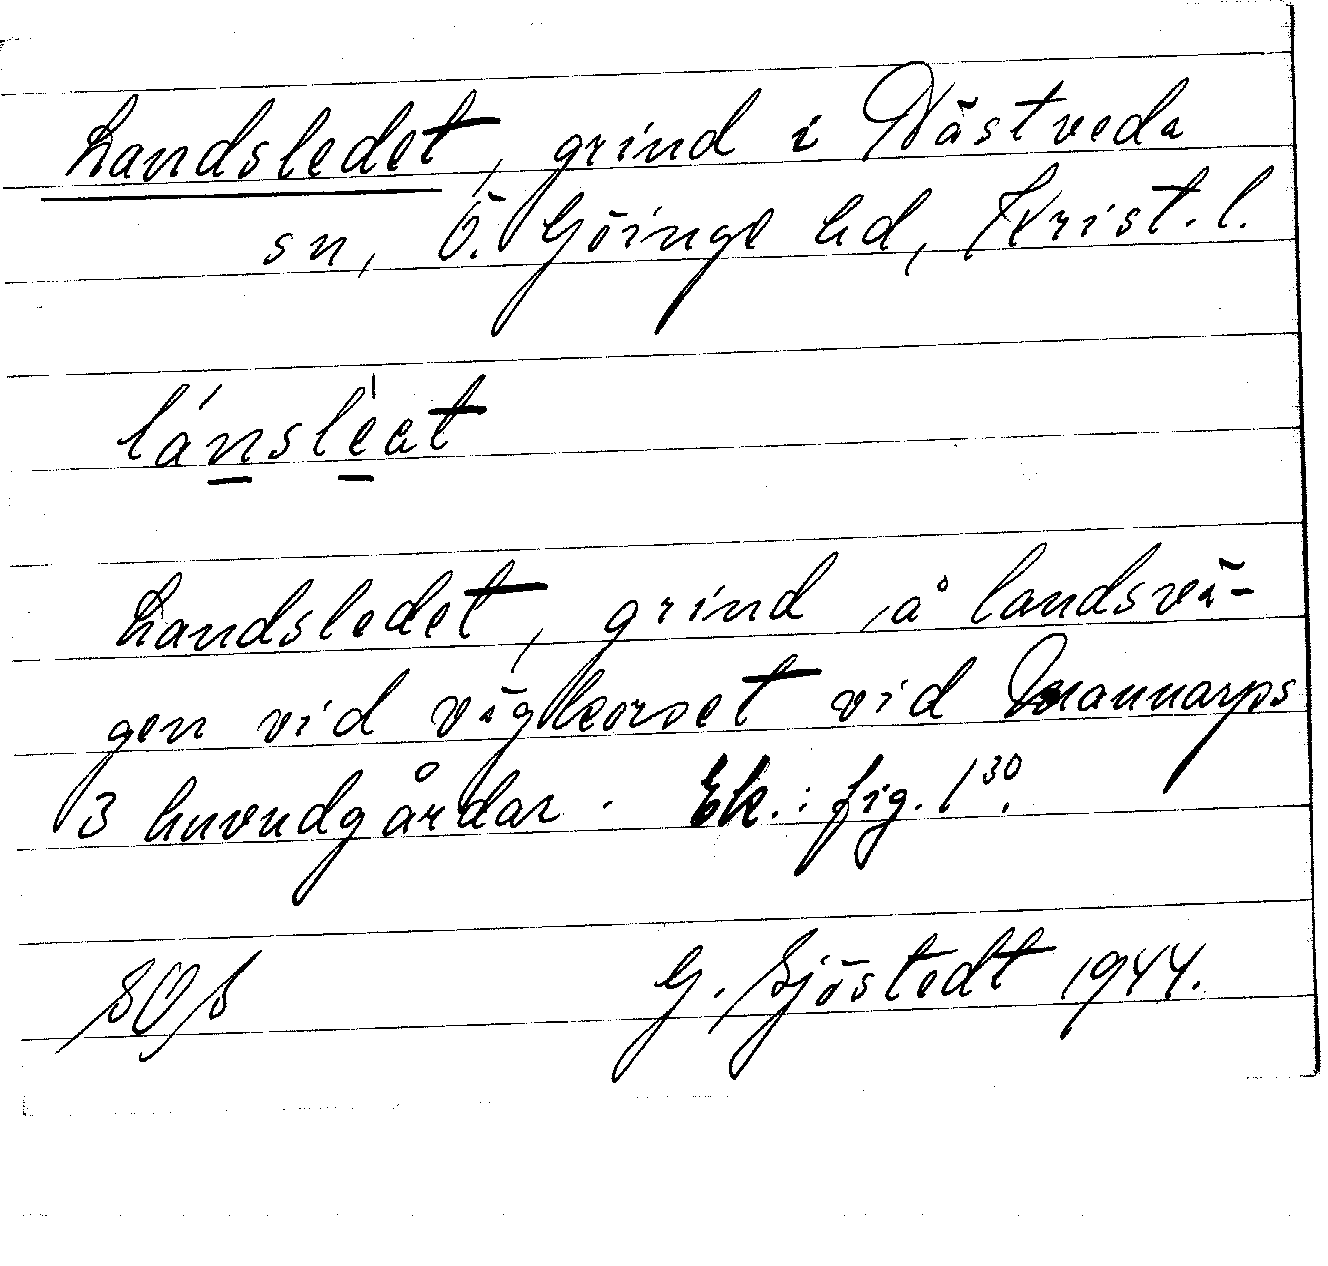 Landsledet, grind i Västveda
sn, Ö. Göinge hd, Krist. l.
lánslèat
Landsledet, grind å landsvä-
gen vid vägkorset vid Mannarps
3 huvudgårdar. Ek.: fig. 1³⁰.
G. Sjöstedt 1944.